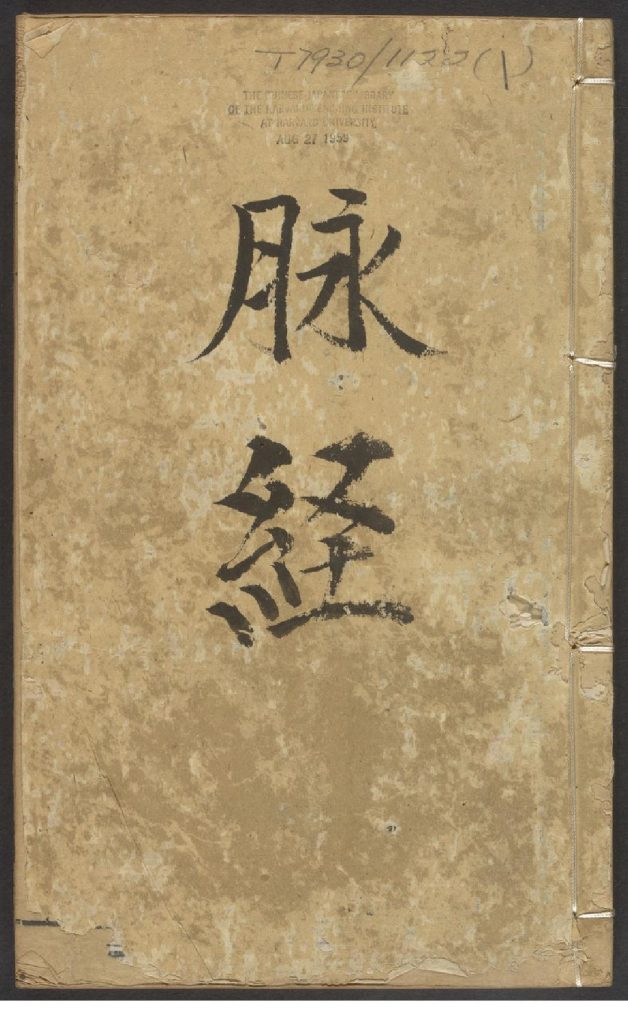 T7930/1122(1)
THE CHINESE-JAPANESE LIBRARY
OF THE HARVARD-YENCHING INSTITUTE
AT HARVARD UNIVERSITY
AUG 27 1959
脉
経